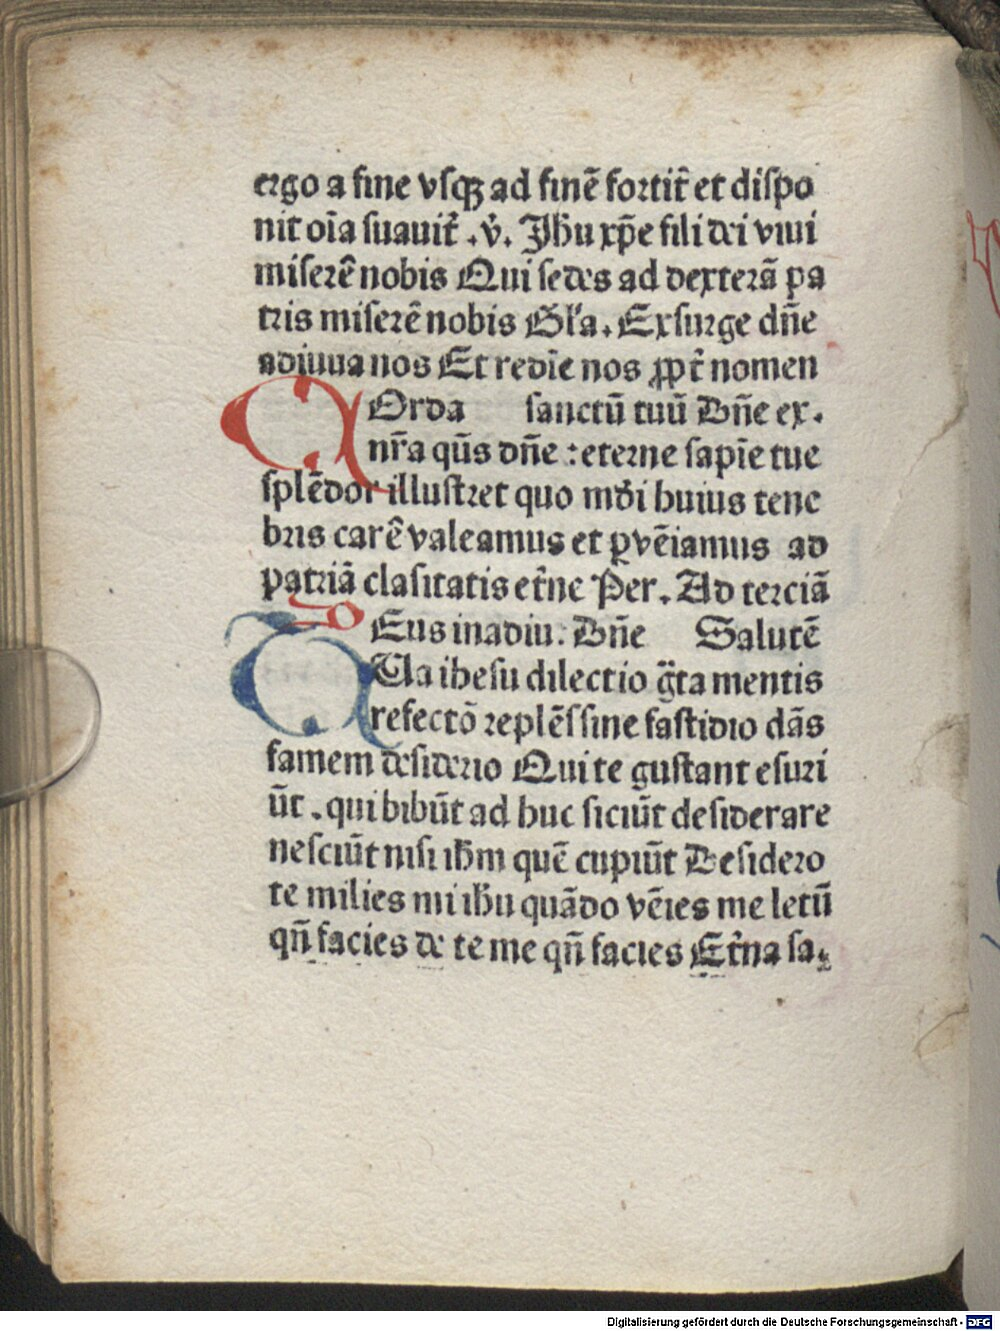 ergo a fine vsqꝫ ad finē fortit̉ et dispo
nit oīa suauit̉ . v̉. Jhu xp̄e fili dei viui
miserē nobis Qui sedes ad dexterā pa
tris miserē nobis Gl'a. Exsurge dn̄e
adiuua nos Et redīe nos ꝓpt̉ nomen
COrda sanctū tuū Dn̄e ex.
nr̄a qūs dn̄e : eterne sapīe tue
splēdor illustret quo mūdi huius tene
bris carē valeamus et ꝑvēiamus ad
patriā clasitatis et̉ne Per. Ad terciā
DEus in adiu. Dn̄e Salutē
TUa ihesu dilectio gͣta mentis
refectō replēs sine fastidio dās
famem desiderio Qui te gustant esuri
ūt . qui bibūt ad huc siciūt desiderare
nesciūt nisi ihm quē cupiūt Desidero
te milies mi ihu quādo vēies me letū
qn̄ facies de te me qn̄ facies Et̉na sa.
Digitalisierung gefördert durch die Deutsche Forschungsgemeinschaft - DFG